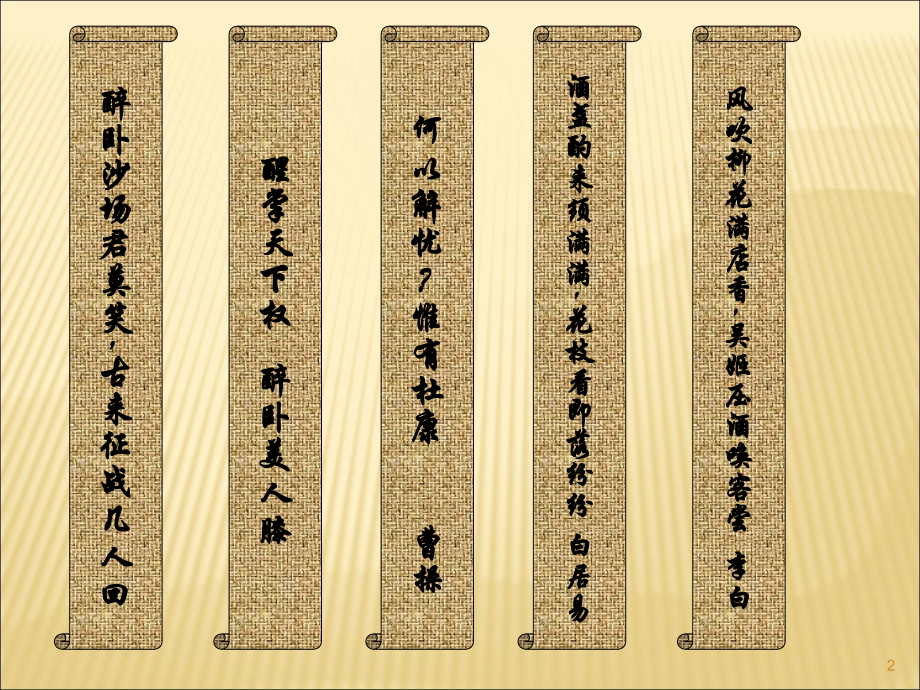 风吹柳花满店香，吴姬压酒唤客尝 李白
酒盏酌来须满满，花枝看即落纷纷 白居易
何以解忧？惟有杜康 曹操
醒掌天下权 醉卧美人膝
醉卧沙场君莫笑，古来征战几人回
2